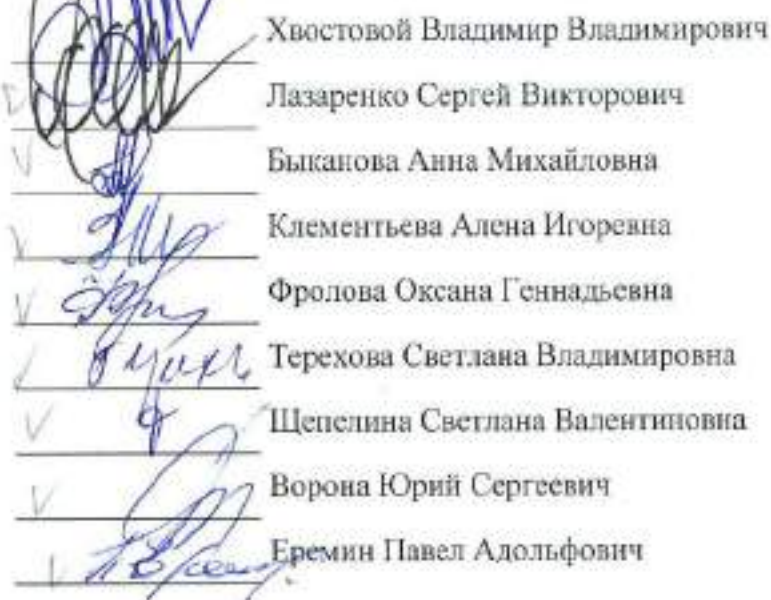 Хвостовой Владимир Владимирович
Лазаренко Сергей Викторович
Быканова Анна Михайловна
Клементьева Алена Игоревна
Фролова Оксана Геннадьевна
Терехова Светлана Владимировна
Щепелина Светлана Валентиновна
Ворона Юрий Сергеевич
Еремин Павел Адольфович